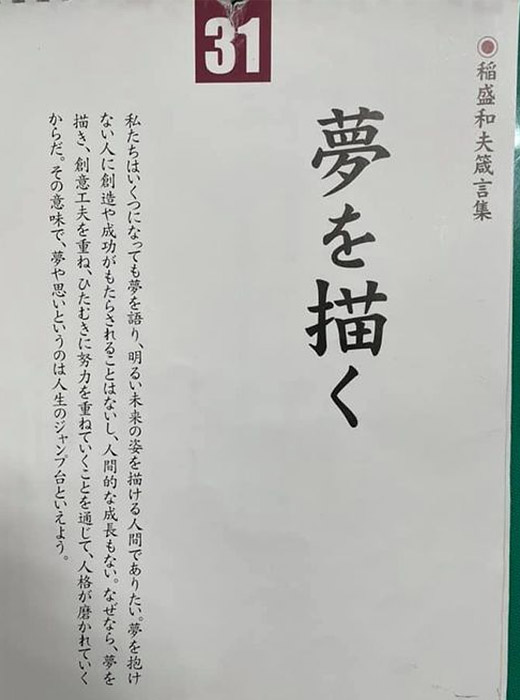 31
稲盛和夫箴言集
夢を描く
私たちはいくつになっても夢を語り、明るい未来の姿を描ける人間でありたい。夢を抱け
ない人に創造や成功がもたらされることはないし、人間的な成長もない。なぜなら、夢を
描き、創意工夫を重ね、ひたむきに努力を重ねていくことを通じて、人格が磨かれていく
からだ。その意味で、夢や思いというのは人生のジャンプ台といえよう。